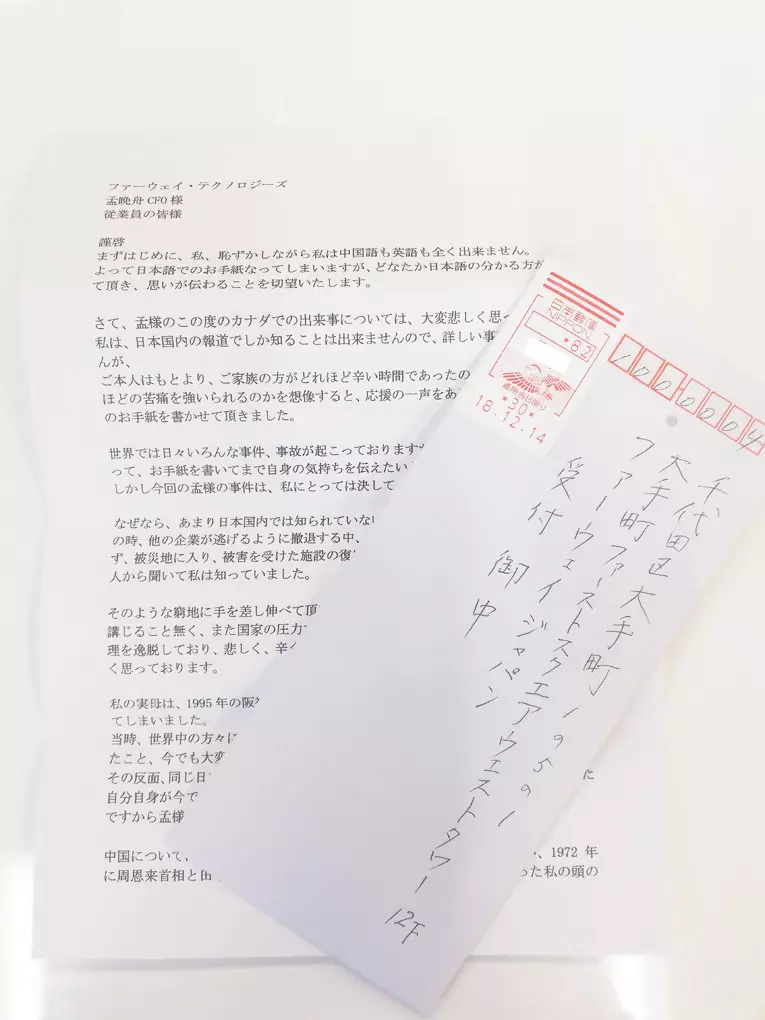 ファーウェイ・テクノロジーズ
孟晩舟 CFO 様
従業員の皆様
謹啓
まずはじめに、私、恥ずかしながら私は中国語も英語も全く出来ません。
よって日本語でのお手紙なってしまいますが、どなたか日本語の分かる方が
て頂き、思いが伝わることを切望いたします。
さて、孟様のこの度のカナダでの出来事については、大変悲しく思
私は、日本国内の報道でしか知ることは出来ませんので、詳しい事
んが、
ご本人はもとより、ご家族の方がどれほど辛い時間であったの
ほどの苦痛を強いられるのかを想像すると、応援の一声をあ
のお手紙を書かせて頂きました。
世界では日々いろんな事件、事故が起こっております
って、お手紙を書いてまで自身の気持ちを伝えたい
しかし今回の孟様の事件は、私にとっては決して
なぜなら、あまり日本国内では知られていな
の時、他の企業が逃げるように撤退する中、
ず、被災地に入り、被害を受けた施設の復
人から聞いて私は知っていました。
そのような窮地に手を差し伸べて頂
講じること無く、また国家の圧力
理を逸脱しており、悲しく、辛
く思っております。
私の実母は、1995 年の阪
てしまいました。
当時、世界中の方々に
たこと、今でも大変
その反面、同じ日
自分自身が今で
ですから孟様
中国について、
、1972 年
に周恩来首相と田
った私の頭の
日本郵便
NIPPON
*82
*30*
18.12.14
1000004
千代田区大手町1-5-1
大手町ファーストスクエアウエストタワー 12F
ファーウェイジャパン
受付 御中